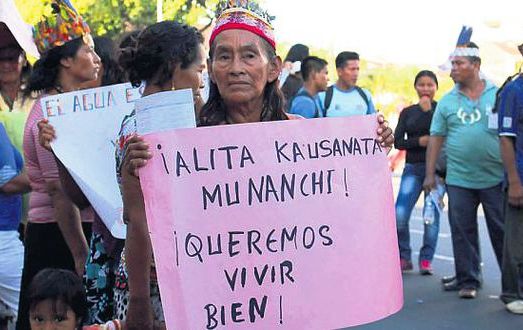 EL AGUA E
¡ALITA KAUSANATA
MUNANCHI!
¡QUEREMOS
VIVIR
BIEN!